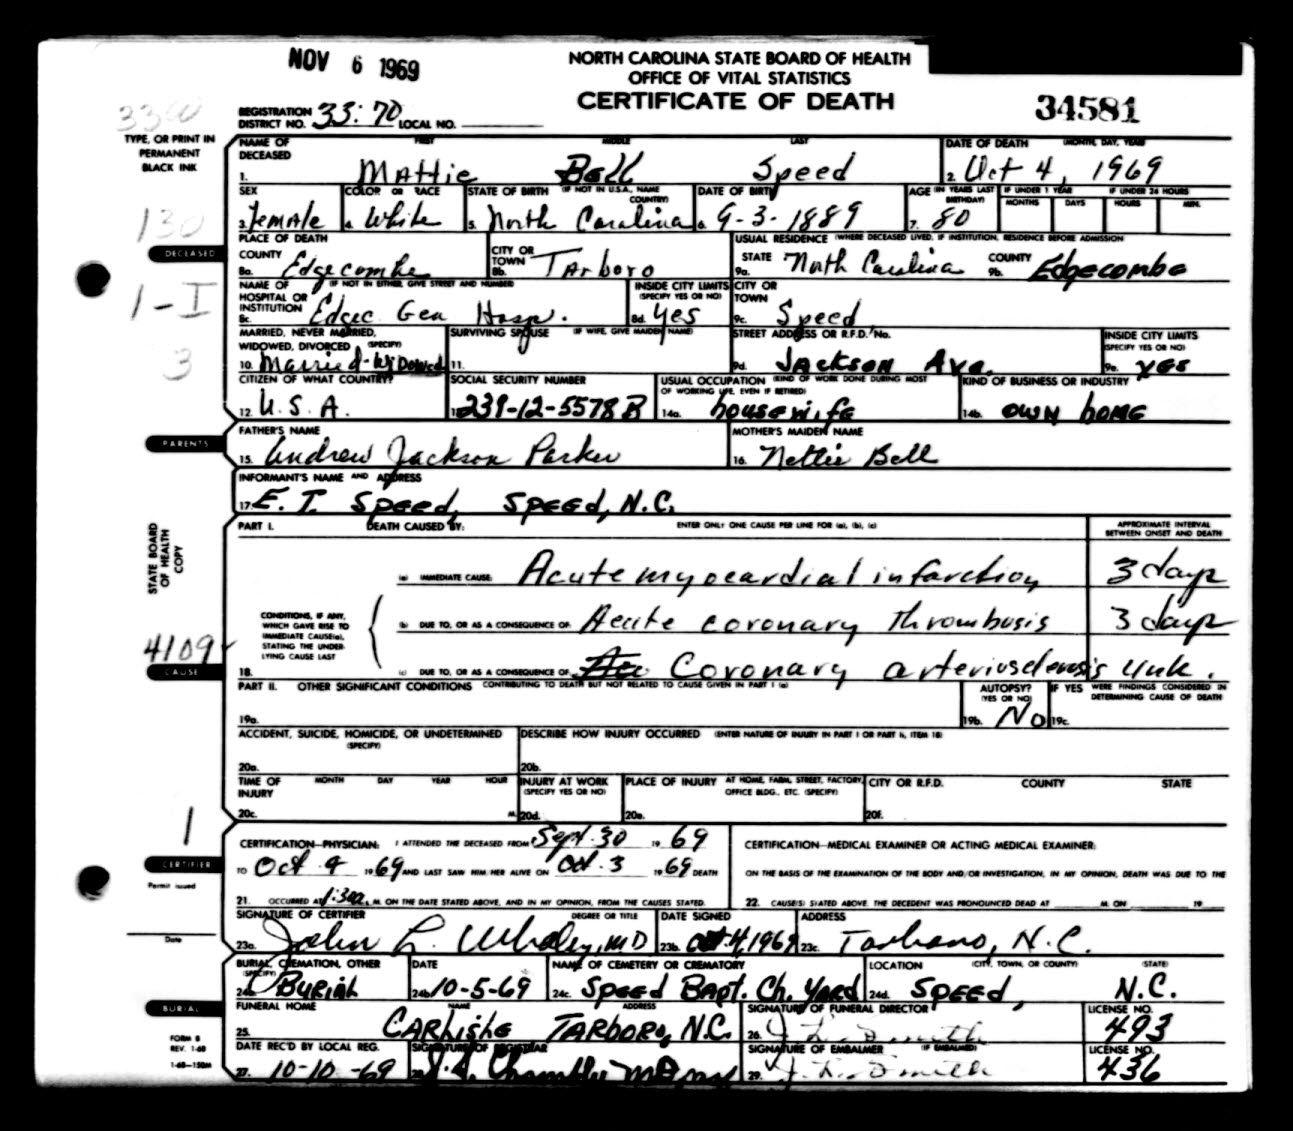 NOV 6 1969
NORTH CAROLINA STATE BOARD OF HEALTH
OFFICE OF VITAL STATISTICS
CERTIFICATE OF DEATH
34581
REGISTRATION DISTRICT NO. 33-70 LOCAL NO.
TYPE, OR PRINT IN PERMANENT BLACK INK
NAME OF DECEASED FIRST MIDDLE LAST
1. Mattie Bell Speed
DATE OF DEATH (MONTH, DAY, YEAR)
2. Oct 4, 1969
SEX
3. Female
COLOR OR RACE
4. White
STATE OF BIRTH (IF NOT IN U.S.A., NAME COUNTRY)
5. North Carolina
DATE OF BIRTH
6. 9-3-1889
AGE (IN YEARS LAST BIRTHDAY)
7. 80
IF UNDER 1 YEAR MONTHS DAYS
IF UNDER 24 HOURS HOURS MIN.
130
DECEASED
PLACE OF DEATH
COUNTY
8a. Edgecombe
CITY OR TOWN
8b. Tarboro
USUAL RESIDENCE (WHERE DECEASED LIVED, IF INSTITUTION, RESIDENCE BEFORE ADMISSION
STATE
9a. North Carolina
COUNTY
9b. Edgecombe
1-I
NAME OF HOSPITAL OR INSTITUTION (IF NOT IN EITHER, GIVE STREET AND NUMBER)
8c. Edgec Gen Hosp.
INSIDE CITY LIMITS (SPECIFY YES OR NO)
8d. Yes
CITY OR TOWN
9c. Speed
3
MARRIED, NEVER MARRIED, WIDOWED, DIVORCED (SPECIFY)
10. Married-Widowed
SURVIVING SPOUSE (IF WIFE, GIVE MAIDEN NAME)
11.
STREET ADDRESS OR R.F.D. No.
9d. Jackson Ave.
INSIDE CITY LIMITS (SPECIFY YES OR NO)
9e. yes
CITIZEN OF WHAT COUNTRY?
12. U.S.A.
SOCIAL SECURITY NUMBER
239-12-5578 B
USUAL OCCUPATION (KIND OF WORK DONE DURING MOST OF WORKING LIFE, EVEN IF RETIRED)
14a. housewife
KIND OF BUSINESS OR INDUSTRY
14b. own home
PARENTS
FATHER'S NAME
15. Andrew Jackson Parker
MOTHER'S MAIDEN NAME
16. Nettie Bell
INFORMANT'S NAME AND ADDRESS
17. E. T. Speed, Speed, N.C.
STATE BOARD OF HEALTH COPY
PART I. DEATH CAUSED BY: ENTER ONLY ONE CAUSE PER LINE FOR (a), (b), (c)
APPROXIMATE INTERVAL BETWEEN ONSET AND DEATH
(a) IMMEDIATE CAUSE: Acute myocardial infarction 3 days
CONDITIONS, IF ANY, WHICH GAVE RISE TO IMMEDIATE CAUSE(a), STATING THE UNDERLYING CAUSE LAST
(b) DUE TO, OR AS A CONSEQUENCE OF: Acute coronary thrombosis 3 days
4109
CAUSE
18. (c) DUE TO, OR AS A CONSEQUENCE OF: Coronary arteriosclerosis unk.
PART II. OTHER SIGNIFICANT CONDITIONS CONTRIBUTING TO DEATH BUT NOT RELATED TO CAUSE GIVEN IN PART I (a)
19a.
AUTOPSY? (YES OR NO)
19b. No
IF YES WERE FINDINGS CONSIDERED IN DETERMINING CAUSE OF DEATH
19c.
ACCIDENT, SUICIDE, HOMICIDE, OR UNDETERMINED (SPECIFY)
20a.
DESCRIBE HOW INJURY OCCURRED (ENTER NATURE OF INJURY IN PART I OR PART II, ITEM 18)
20b.
TIME OF INJURY MONTH DAY YEAR HOUR
20c. M.
INJURY AT WORK (SPECIFY YES OR NO)
20d.
PLACE OF INJURY AT HOME, FARM, STREET, FACTORY, OFFICE BLDG., ETC. (SPECIFY)
20e.
CITY OR R.F.D. COUNTY STATE
20f.
1
CERTIFIER
Permit issued
Date
CERTIFICATION—PHYSICIAN: I ATTENDED THE DECEASED FROM Sept. 30 1969
TO Oct 4 1969 AND LAST SAW HIM HER ALIVE ON Oct. 3 1969 DEATH
21. OCCURRED AT 1:30a M. ON THE DATE STATED ABOVE, AND IN MY OPINION, FROM THE CAUSES STATED.
CERTIFICATION—MEDICAL EXAMINER OR ACTING MEDICAL EXAMINER:
ON THE BASIS OF THE EXAMINATION OF THE BODY AND/OR INVESTIGATION, IN MY OPINION, DEATH WAS DUE TO THE
22. CAUSE(S) STATED ABOVE. THE DECEDENT WAS PRONOUNCED DEAD AT M. ON 19
SIGNATURE OF CERTIFIER DEGREE OR TITLE
23a. John L. Whaley, MD
DATE SIGNED
23b. Oct. 4, 1969
ADDRESS
23c. Tarboro, N.C.
BURIAL, CREMATION, OTHER (SPECIFY)
24a. Burial
DATE
24b. 10-5-69
NAME OF CEMETERY OR CREMATORY
24c. Speed Bapt. Ch. Yard
LOCATION (CITY, TOWN, OR COUNTY) (STATE)
24d. Speed, N.C.
BURIAL
FUNERAL HOME NAME ADDRESS
25. Carlisle Tarboro, N.C.
SIGNATURE OF FUNERAL DIRECTOR
26. J. L. Smith
LICENSE NO.
493
FORM 8
REV. 1-68
1-68—150M
DATE REC'D BY LOCAL REG.
27. 10-10-69
SIGNATURE OF REGISTRAR
28.
SIGNATURE OF EMBALMER (IF EMBALMED)
29. J. L. Smith
LICENSE NO.
436